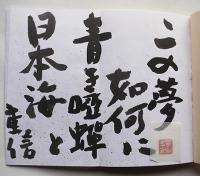 この夢
如何に
青き唖蝉
日本海と
重信